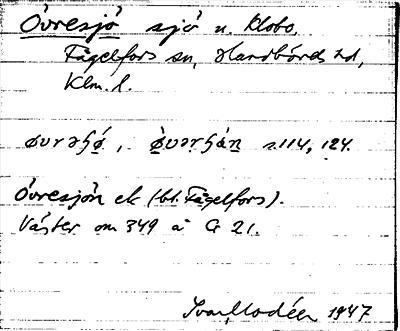 Övresjö sjö n. Klobo,
Fågelfors sn, Handbörds hd,
Klm. l.
øvrəɧø̀, ø̀vərɧǻn s. 114, 124.
Övresjön ek (bl. Fågelfors).
Väster om 349 å G 21.
Ivar Modéer 1947